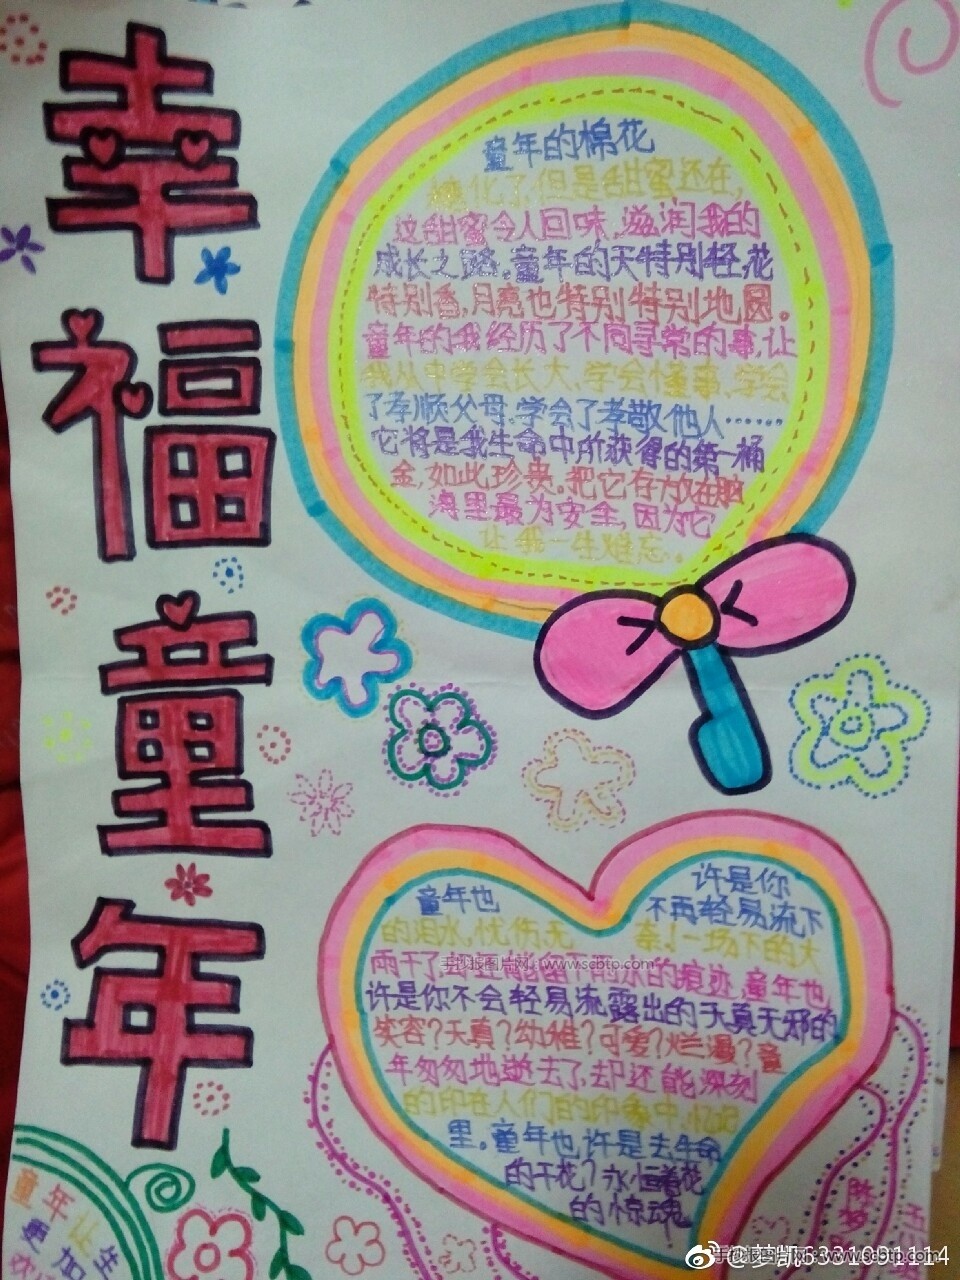 幸福童年
童年的棉花
糖化了,但是甜蜜还在,
这甜蜜令人回味,滋润我的
成长之路。童年的天特别轻,花
特别香,月亮也特别特别地圆。
童年的我经历了不同寻常的事,让
我从中学会长大,学会懂事,学会
了孝顺父母,学会了孝敬他人……
它将是我生命中所获得的第一桶
金,如此珍贵。把它存放在脑
海里最为安全,因为它
让我一生难忘。
童年也
许是你
不再轻易流下
的泪水,忧伤无
奈!一场下的大
雨干了
留下雨水的痕迹,童年也
许是你不会轻易流露出的天真无邪的
笑容?天真?幼稚?可爱?烂漫?童
年匆匆地逝去了,却还能深刻
的印在人们的印象中,忆记
里。童年也许是去生命
的干花?永恒着花
的惊魂
童年让
更加
手抄报图片网 - www.scbtp.com
手抄报图片网 - www.scbtp.com
6331091114